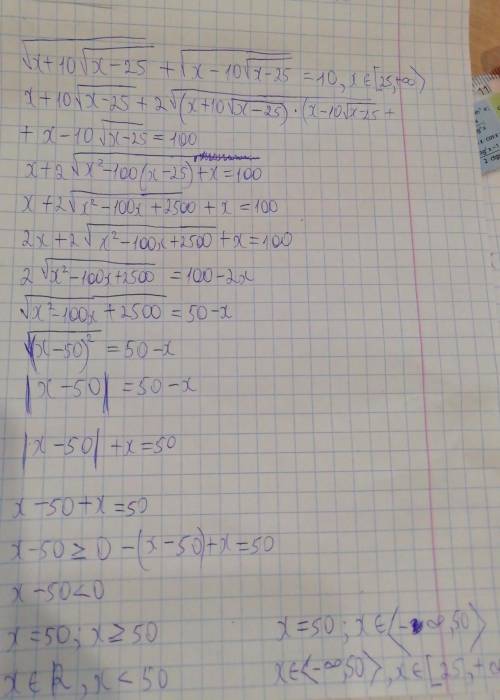 √(x+10√(x-25)) + √(x-10√(x-25)) = 10, x ∈ [25, +∞⟩
x+10√(x-25) + 2√((x+10√(x-25))·(x-10√(x-25) +
+ x-10√(x-25) = 100
x+2√(x²-100(x-25)) + x = 100
x+2√(x²-100x+2500) + x = 100
2x+2√(x²-100x+2500) + x = 100
2√(x²-100x+2500) = 100-2x
√(x²-100x+2500) = 50-x
√((x-50)²) = 50-x
|x-50| = 50-x
|x-50| + x = 50
x-50+x = 50
x-50 ≥ 0 -(x-50)+x = 50
x-50 < 0
x = 50; x ≥ 50 x = 50; x ∈ ⟨-∞, 50⟩
x ∈ R, x < 50 x ∈ ⟨-∞, 50⟩, x ∈ [25, +∞